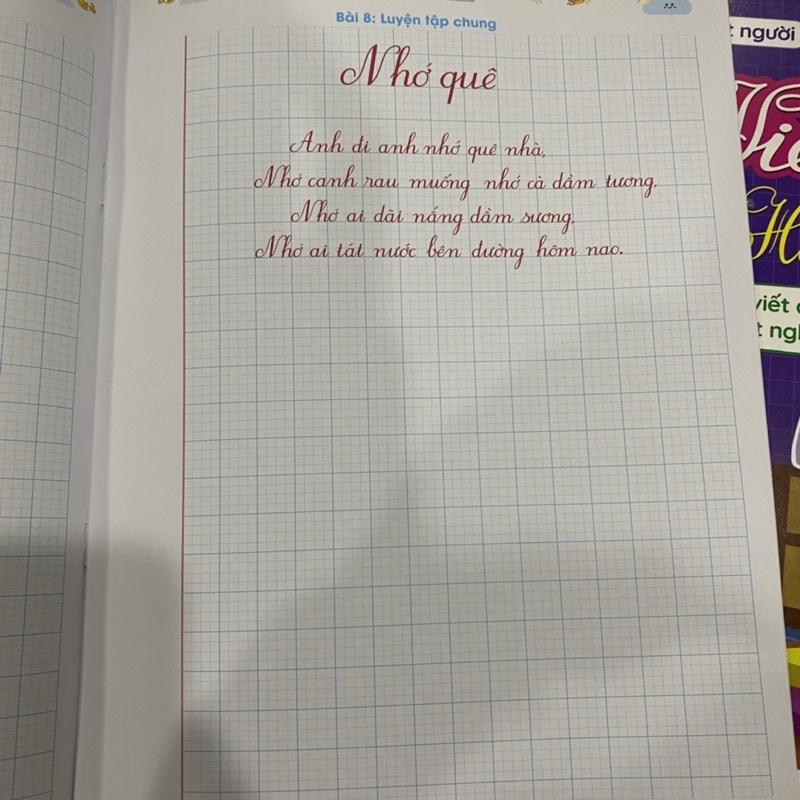 Bài 8: Luyện tập chung
Nhớ quê
Anh đi anh nhớ quê nhà,
Nhớ canh rau muống nhớ cà dầm tương.
Nhớ ai dãi nắng dầm sương,
Nhớ ai tát nước bên đường hôm nao.
người
viết